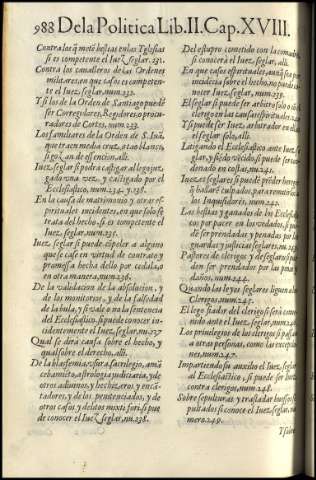 988 De la Politica Lib. II. Cap. XVIII.
Contra los q̃ metẽ bestias en las Iglesias
si es competente el Iuez seglar. 231.
Contra los caualleros de las Ordenes
militares, en que casos es competente
Iuez seglar, num. 232.
Y si los de la Orden de Santiago puedẽ
ser Corregidores, Regidores, o procu-
radores de Cortes, num. 233.
Los familiares de la Orden de S. Iuã,
que traen media cruz, o tao blanco,
si gozan de essencion, alli.
Iuez seglar si podra castigar al lego juz-
gado vna vez, y castigado por el
Ecclesiastico, num. 234. y 238.
En la causa de matrimonio y otras es-
pirituales incidentes, en que solo se
trata del hecho, si es competente el
Iuez seglar, num. 235.
Iuez seglar si puede cõpeler a alguno
que se case en virtud de contrato y
promessa hecha dello por cedula, o
en otra manera, num. 236.
De la validacion de la absolucion, y
de los monitorios, y de la falsedad
de la bula, y si vale o no la sentencia
del Ecclesiastico, si puede conocer in-
cidentemente el Iuez seglar, nu. 237
Qual se dirà causa sobre el hecho, y
qual sobre el derecho, alli.
De la blasfemia, vsura, sacrilegio, amã
cebamiẽto, astrologia judiciaria, y de
otros adiuinos, y hechizeros, y encã-
tadores, y de los penitenciados, y de
otros casos, y delitos mixti fori, si pue
de conocer el Iuez seglar, nu. 238.
Del estupro cometido con la comadre,
si conocerà el Iuez seglar, alli.
En que casos espirituales, aunq̃ sea por
incidẽcia sobre el hecho, no puede co-
nocer el Iuez seglar, num. 239.
El seglar si puede ser arbitro solo o cõ
clerigo en las causas espirituales. 240
Y si puede ser Iuez, arbitrador en ellas
el seglar solo, alli.
Litigando el Ecclesiastico ante Iuez se-
glar, y siẽdo vẽcido, si puede ser con-
denado en costas, nu. 241.
Iuezes seglares si puedẽ prẽder hereges
q̃ hallarẽ culpados, para remitirlos a
los Inquisidores, num. 242.
Las bestias y ganados de los Ecclesiasti-
cos por pacer en lo vedado, si pue-
de ser prendadas y penadas por las
guardas y justicias seglares, nu. 243
Pastores de clerigos y de seglares si pue
den ser prendados por las penas y
daños, num. 244.
Quando las leyes seglares liguen a los
Clerigos, num. 245.
El lego fiador del clerigo si serà conue-
nido ante el Iuez seglar, num. 246.
Los priuilegios de los clerigos si passan
a otras personas, como las excepcio-
nes, num. 247.
Impartiendo su auxilio el Iuez seglar
al Ecclesiastico, si puede ser hecho
contra clerigos, num. 248.
Sobre sepulturas y trasladar huessos se-
pultados si conoce el Iuez seglar, nu-
mero. 249.
Y sobre